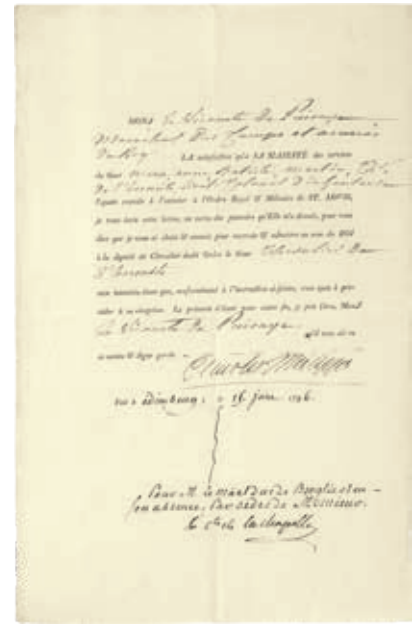 MONS le Vicomte De Puisaye
Marechal Des Camps et armées
Du Roy LA satisfaction qu'a SA MAJESTÉ des services
du Sieur anne, Baptiste, martin,
De l'Hermite Lieut Colonel D'infanterie
l'ayant conviée à l'associer à l'Ordre Royal & Militaire de ST. LOUIS,
je vous écris cette lettre, en vertu des pouvoirs qu'Elle m'a donnés, pour vous
dire que je vous ai choisi & commis pour recevoir & admettre au nom du ROI
à la dignité de Chevalier dudit Ordre le Sieur
mon intention étant que, conformément à l'instruction ci-jointe, vous ayez à pro-
céder à sa réception. La présente n'étant pour autre fin, je prie Dieu, Mons
le Vicomte de Puisaye, qu'il vous ait en
sa sainte & digne garde.
Charles Philippe
Fait à édimbourg, le 16 juin 1796.
Pour M. le maréchal duc de Broglie et en
son absence, Par ordre de Monsieur.
le Cte de la chapelle